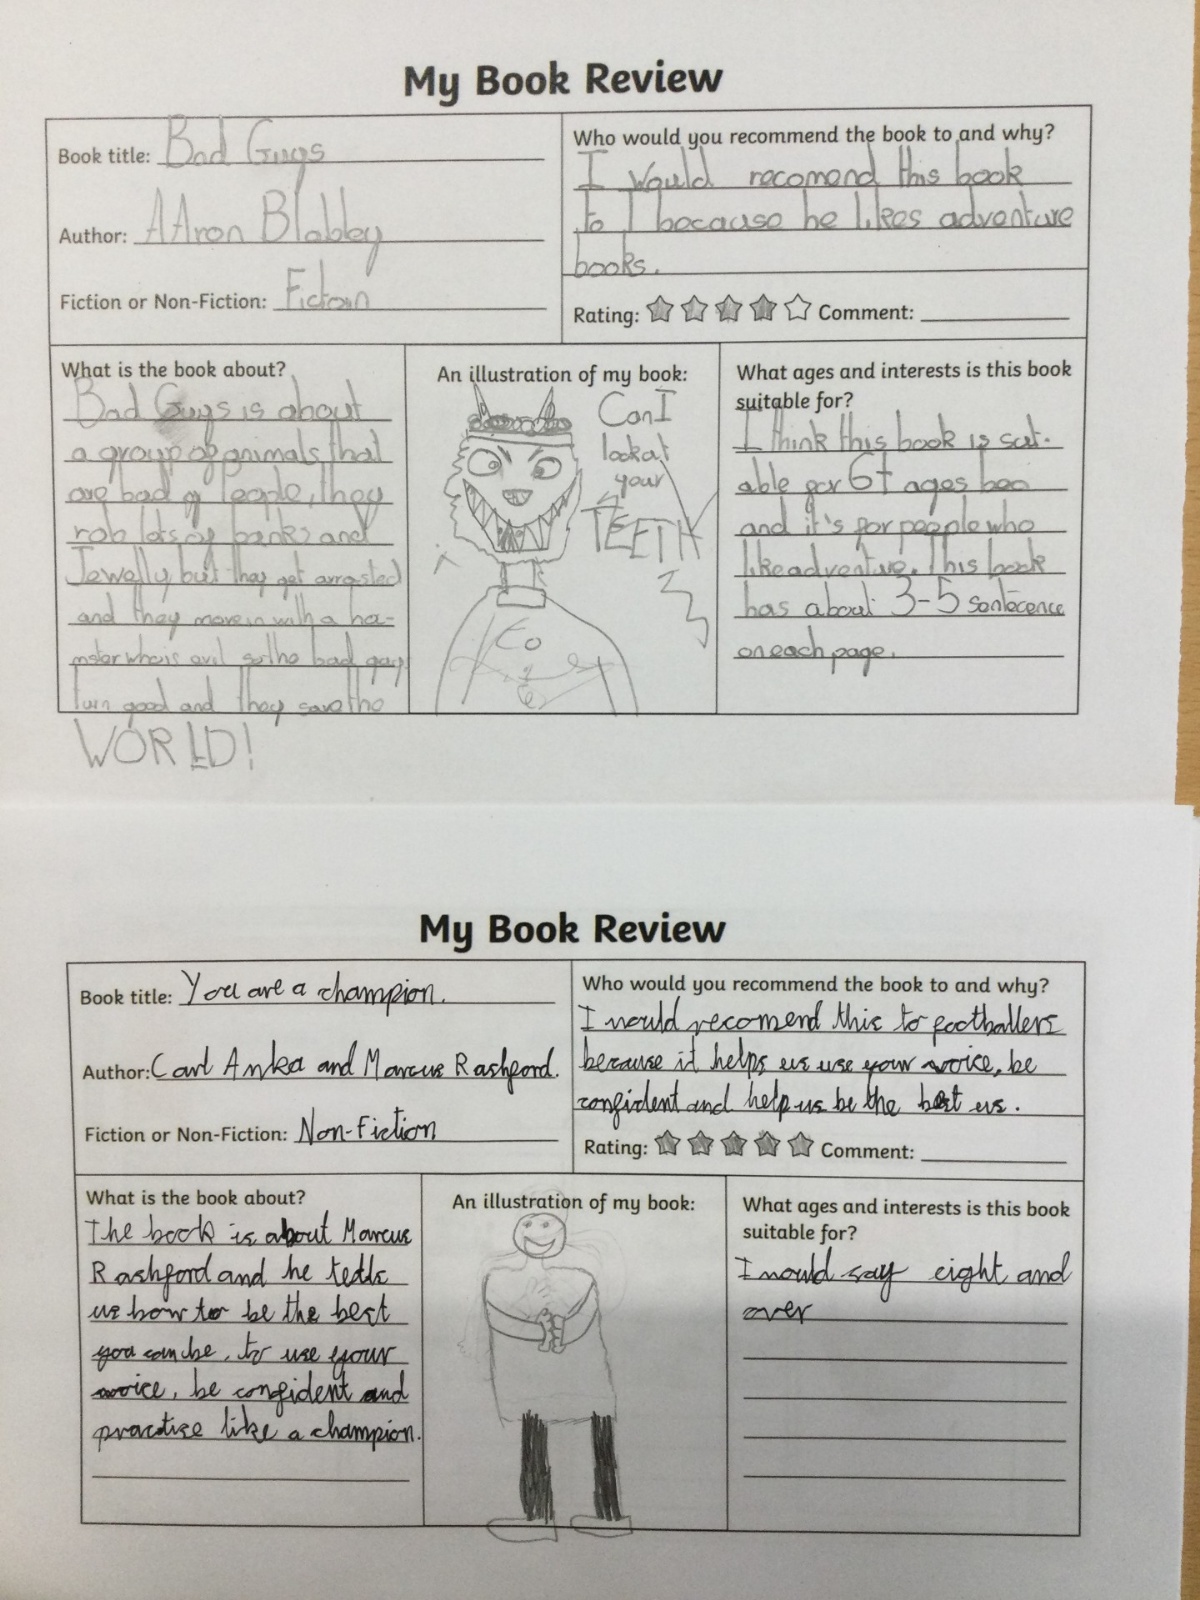 My Book Review
Book title: Bad Guys
Author: AAron Blabley
Fiction or Non-Fiction: Fictoin
Who would you recommend the book to and why?
I would recomend this book
to I because he likes adventure
books.
Rating: Comment:
What is the book about?
Bad Guys is about
a group of animals that
are bad of People, they
rob lots of banks and
Jewelly, but they get arrested
and they move in with a ha-
mster who is evil so the bad guys
turn good and they save the
WORLD!
An illustration of my book:
Can I
look at
your
TEETH
What ages and interests is this book
suitable for?
I think this book is suit-
able for 6+ ages
and it's for people who
like adventure. This book
has about 3-5 sentecence
on each page.
My Book Review
Book title: You are a champion.
Author: Carl Anka and Marcus Rashford.
Fiction or Non-Fiction: Non-Fiction
Who would you recommend the book to and why?
I would recomend this to footballers
because it helps us use your voice, be
confident and help us be the best us.
Rating: Comment:
What is the book about?
The book is about Marcus
Rashford and he tells
us how to be the best
you can be, to use your
voice, be confident and
practise like a champion.
An illustration of my book:
What ages and interests is this book
suitable for?
I would say eight and
over